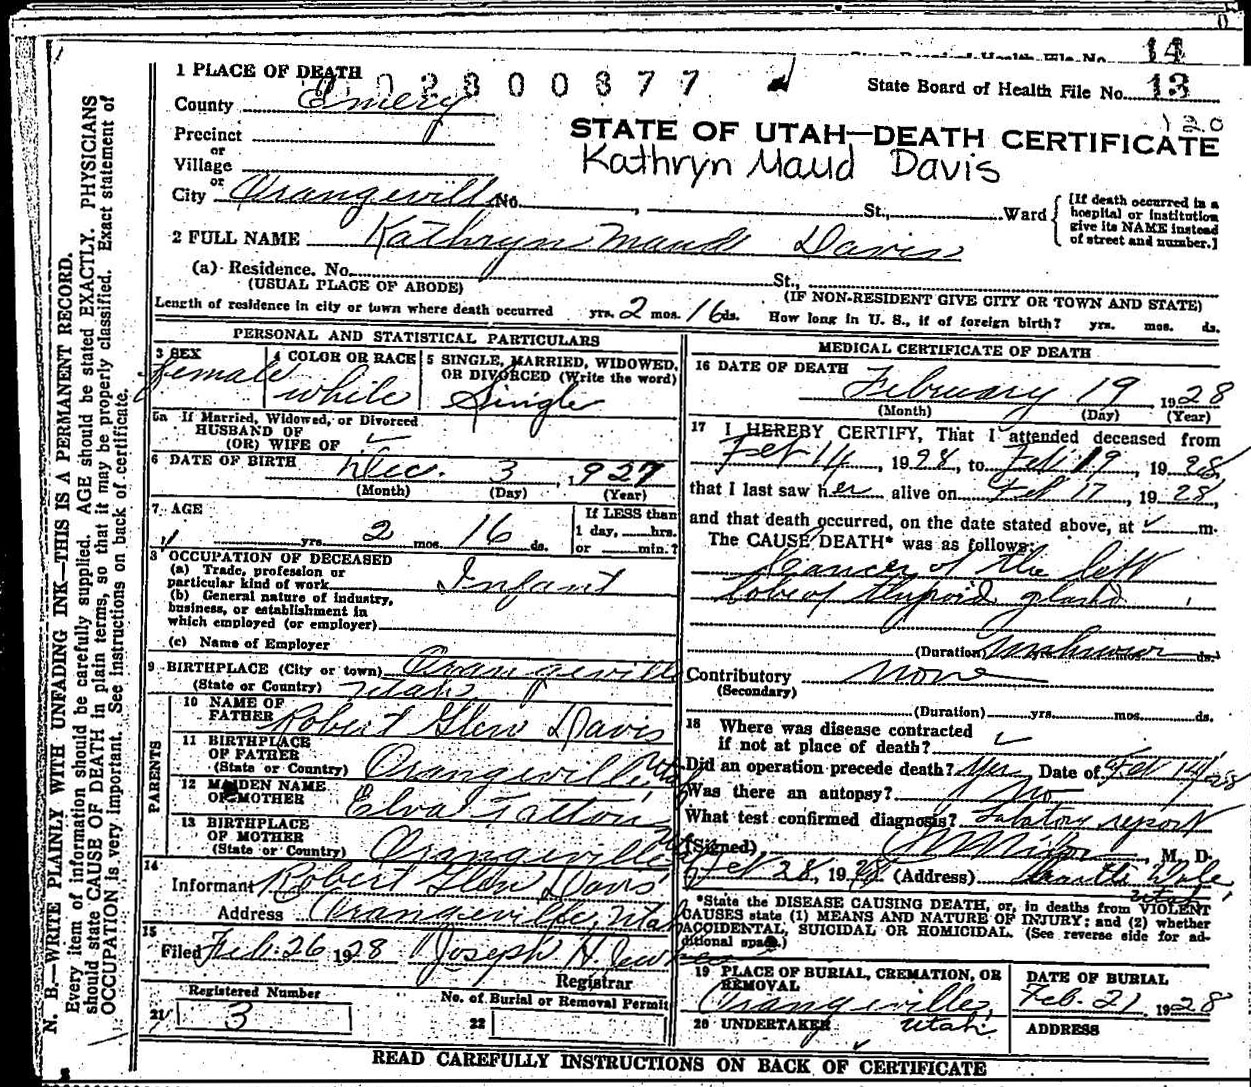 State Board of Health File No. 14
1 PLACE OF DEATH
2300377
State Board of Health File No. 13
County Emery
190
Precinct
or
STATE OF UTAH—DEATH CERTIFICATE
Village
Kathryn Maud Davis
or
City Orangeville No. , St., Ward
[If death occurred in a hospital or institution give its NAME instead of street and number.]
2 FULL NAME Kathryn Maude Davis
(a) Residence. No. St.,
(USUAL PLACE OF ABODE) (IF NON-RESIDENT GIVE CITY OR TOWN AND STATE)
Length of residence in city or town where death occurred yrs. 2 mos. 16 ds. How long in U. S., if of foreign birth? yrs. mos. ds.
PERSONAL AND STATISTICAL PARTICULARS
3 SEX
female
4 COLOR OR RACE
white
5 SINGLE, MARRIED, WIDOWED,
OR DIVORCED (Write the word)
Single
5a If Married, Widowed, or Divorced
HUSBAND OF
(OR) WIFE OF
6 DATE OF BIRTH Dec. 3, 1927
(Month) (Day) (Year)
7 AGE
yrs. 2 mos. 16 ds.
If LESS than
1 day, hrs.
or min.?
8 OCCUPATION OF DECEASED
(a) Trade, profession or
particular kind of work Infant
(b) General nature of industry,
business, or establishment in
which employed (or employer)
(c) Name of Employer
9 BIRTHPLACE (City or town) Orangeville
(State or Country) Utah
PARENTS
10 NAME OF
FATHER Robert Glen Davis
11 BIRTHPLACE
OF FATHER
(State or Country) Orangeville Utah
12 MAIDEN NAME
OF MOTHER Elva Tatton
13 BIRTHPLACE
OF MOTHER
(State or Country) Orangeville
14
Informant Robert Glen Davis
Address Orangeville, Utah
15
Filed Feb. 26 1928 Joseph H.
Registrar
Registered Number
21 3
No. of Burial or Removal Permit
22
MEDICAL CERTIFICATE OF DEATH
16 DATE OF DEATH
February 19 1928
(Month) (Day) (Year)
17 I HEREBY CERTIFY, That I attended deceased from
Feb 14, 1928, to Feb 19, 1928,
that I last saw her alive on Feb 17, 1928,
and that death occurred, on the date stated above, at m.
The CAUSE DEATH* was as follows:
Cancer of the left
lobe of thyroid gland
(Duration) unknown ds.
Contributory None
(Secondary)
(Duration) yrs. mos. ds.
18 Where was disease contracted
if not at place of death?
Did an operation precede death? Yes Date of Feb 14/28
Was there an autopsy? no
What test confirmed diagnosis? report
(Signed) , M. D.
Feb 28, 1928 (Address) Castle Dale
Utah
*State the DISEASE CAUSING DEATH, or, in deaths from VIOLENT
CAUSES state (1) MEANS AND NATURE OF INJURY; and (2) whether
ACCIDENTAL, SUICIDAL OR HOMICIDAL. (See reverse side for ad-
ditional space.)
19 PLACE OF BURIAL, CREMATION, OR
REMOVAL
Orangeville,
Utah
DATE OF BURIAL
Feb. 21, 1928
20 UNDERTAKER
ADDRESS
READ CAREFULLY INSTRUCTIONS ON BACK OF CERTIFICATE
N. B.—WRITE PLAINLY WITH UNFADING INK—THIS IS A PERMANENT RECORD.
Every item of information should be carefully supplied. AGE should be stated EXACTLY. PHYSICIANS
should state CAUSE OF DEATH in plain terms, so that it may be properly classified. Exact statement of
OCCUPATION is very important. See instructions on back of certificate.